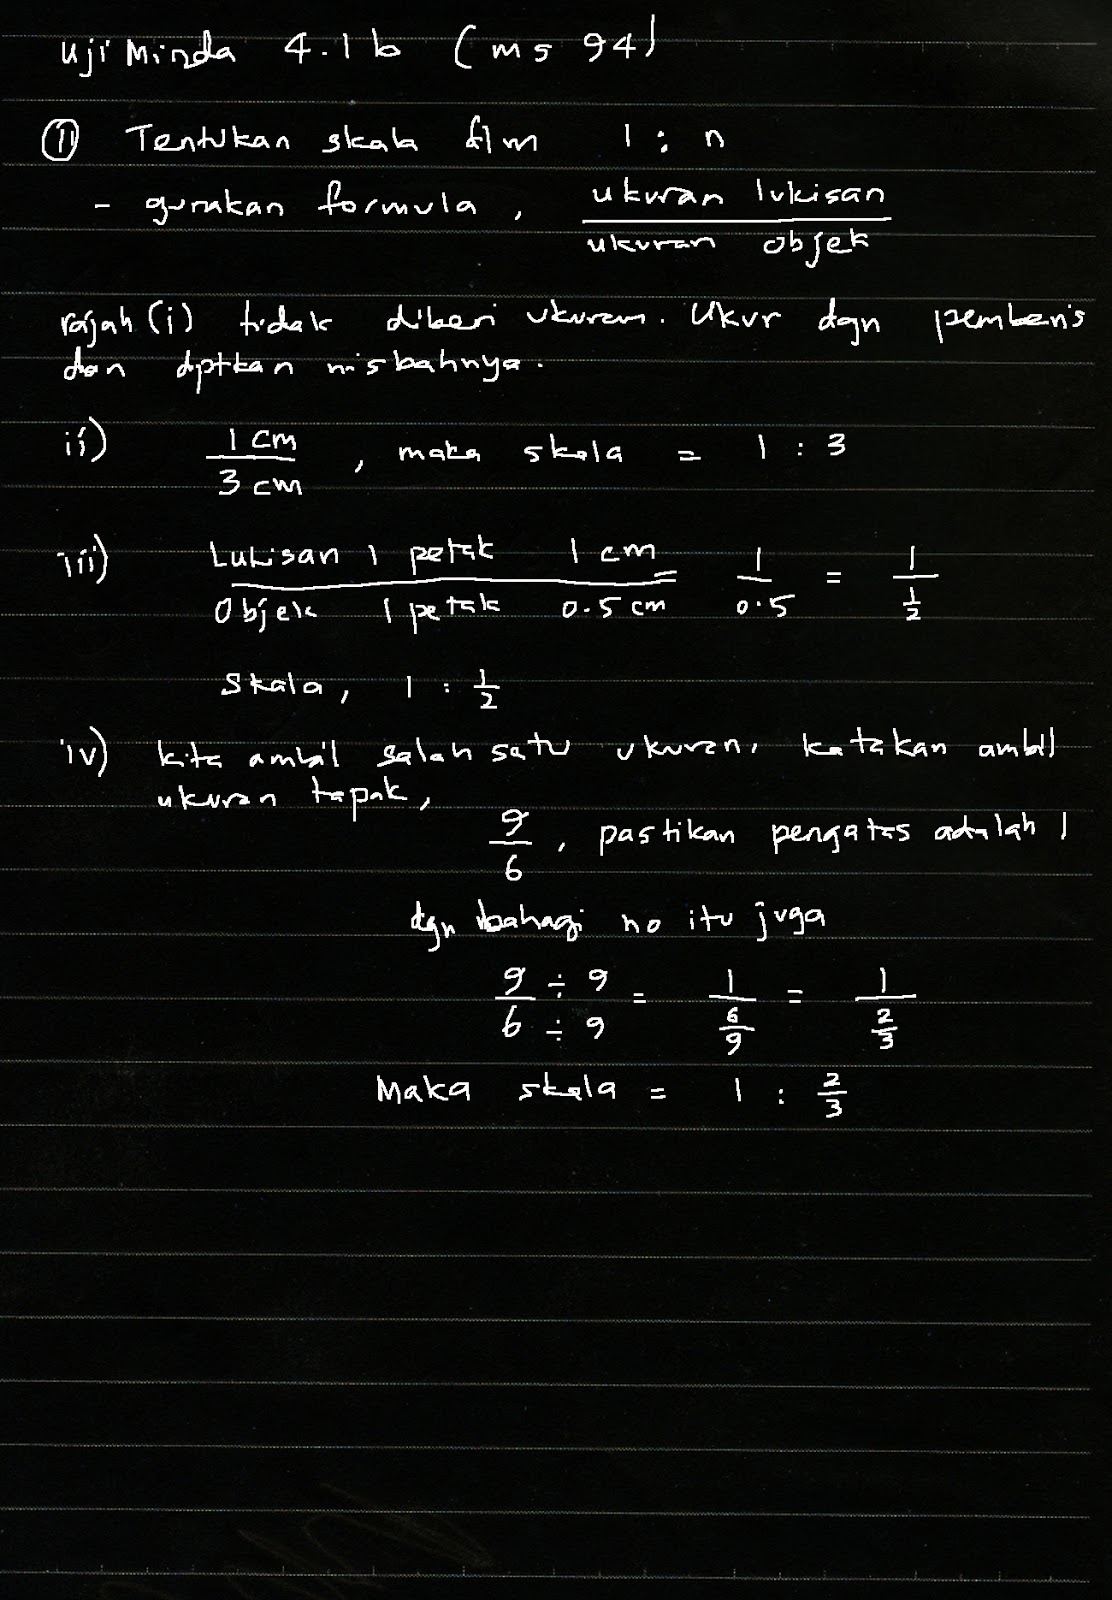 Uji Minda 4.1b (ms 94)
① Tentukan skala dlm 1 : n
- gunakan formula, ukuran lukisan / ukuran objek
rajah (i) tidak diberi ukuran. Ukur dgn pembaris
dan dptkan nisbahnya.
ii) 1 cm / 3 cm , maka skala = 1 : 3
iii) Lukisan 1 petak 1 cm / Objek 1 petak 0.5 cm = 1 / 0.5 = 1 / 1/2
Skala, 1 : 1/2
iv) kita ambil salah satu ukuran, katakan ambil
ukuran tapak,
9/6 , pastikan pengatas adalah 1
dgn bahagi no itu juga
9 ÷ 9 / 6 ÷ 9 = 1 / 6/9 = 1 / 2/3
Maka skala = 1 : 2/3